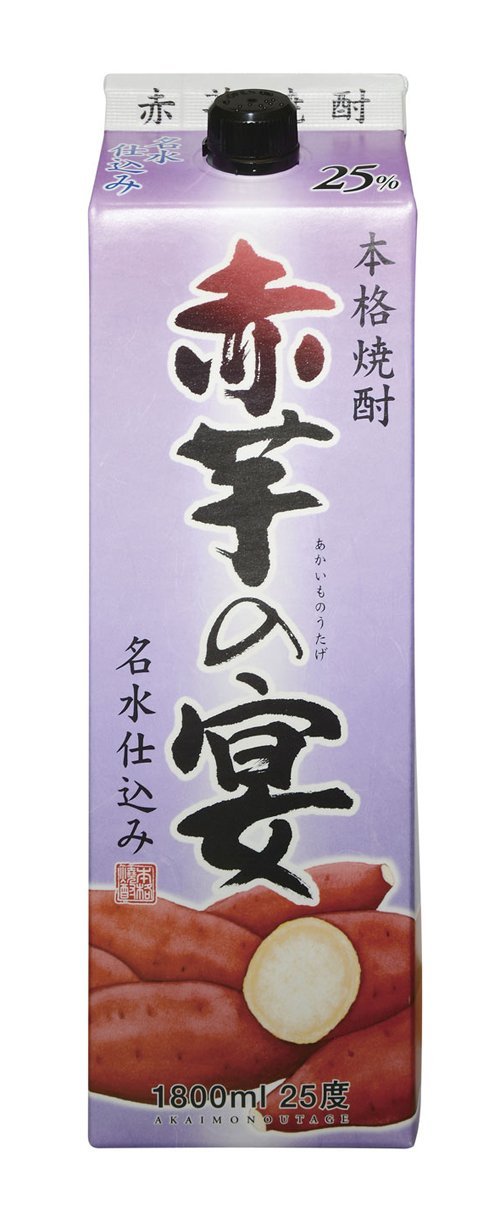 赤芋焼酎
名水
仕込み
25%
本格焼酎
赤芋の宴
あかいものうたげ
名水仕込み
本格
焼酎
1800ml 25度
AKAIMONOUTAGE